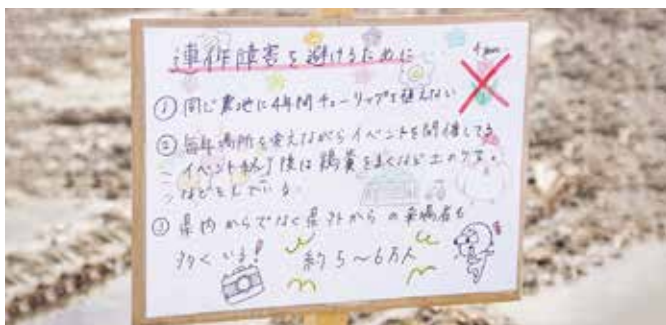 連作障害を避けるために
① 同じ農地に4年間チューリップを植えない
② 毎年場所を変えながらイベントを開催してる
イベント終了後は鶏糞をまくなど土のケア。
などをしている
③ 県内からでなく県外からの来場者も
多くいる!
約5〜6万人